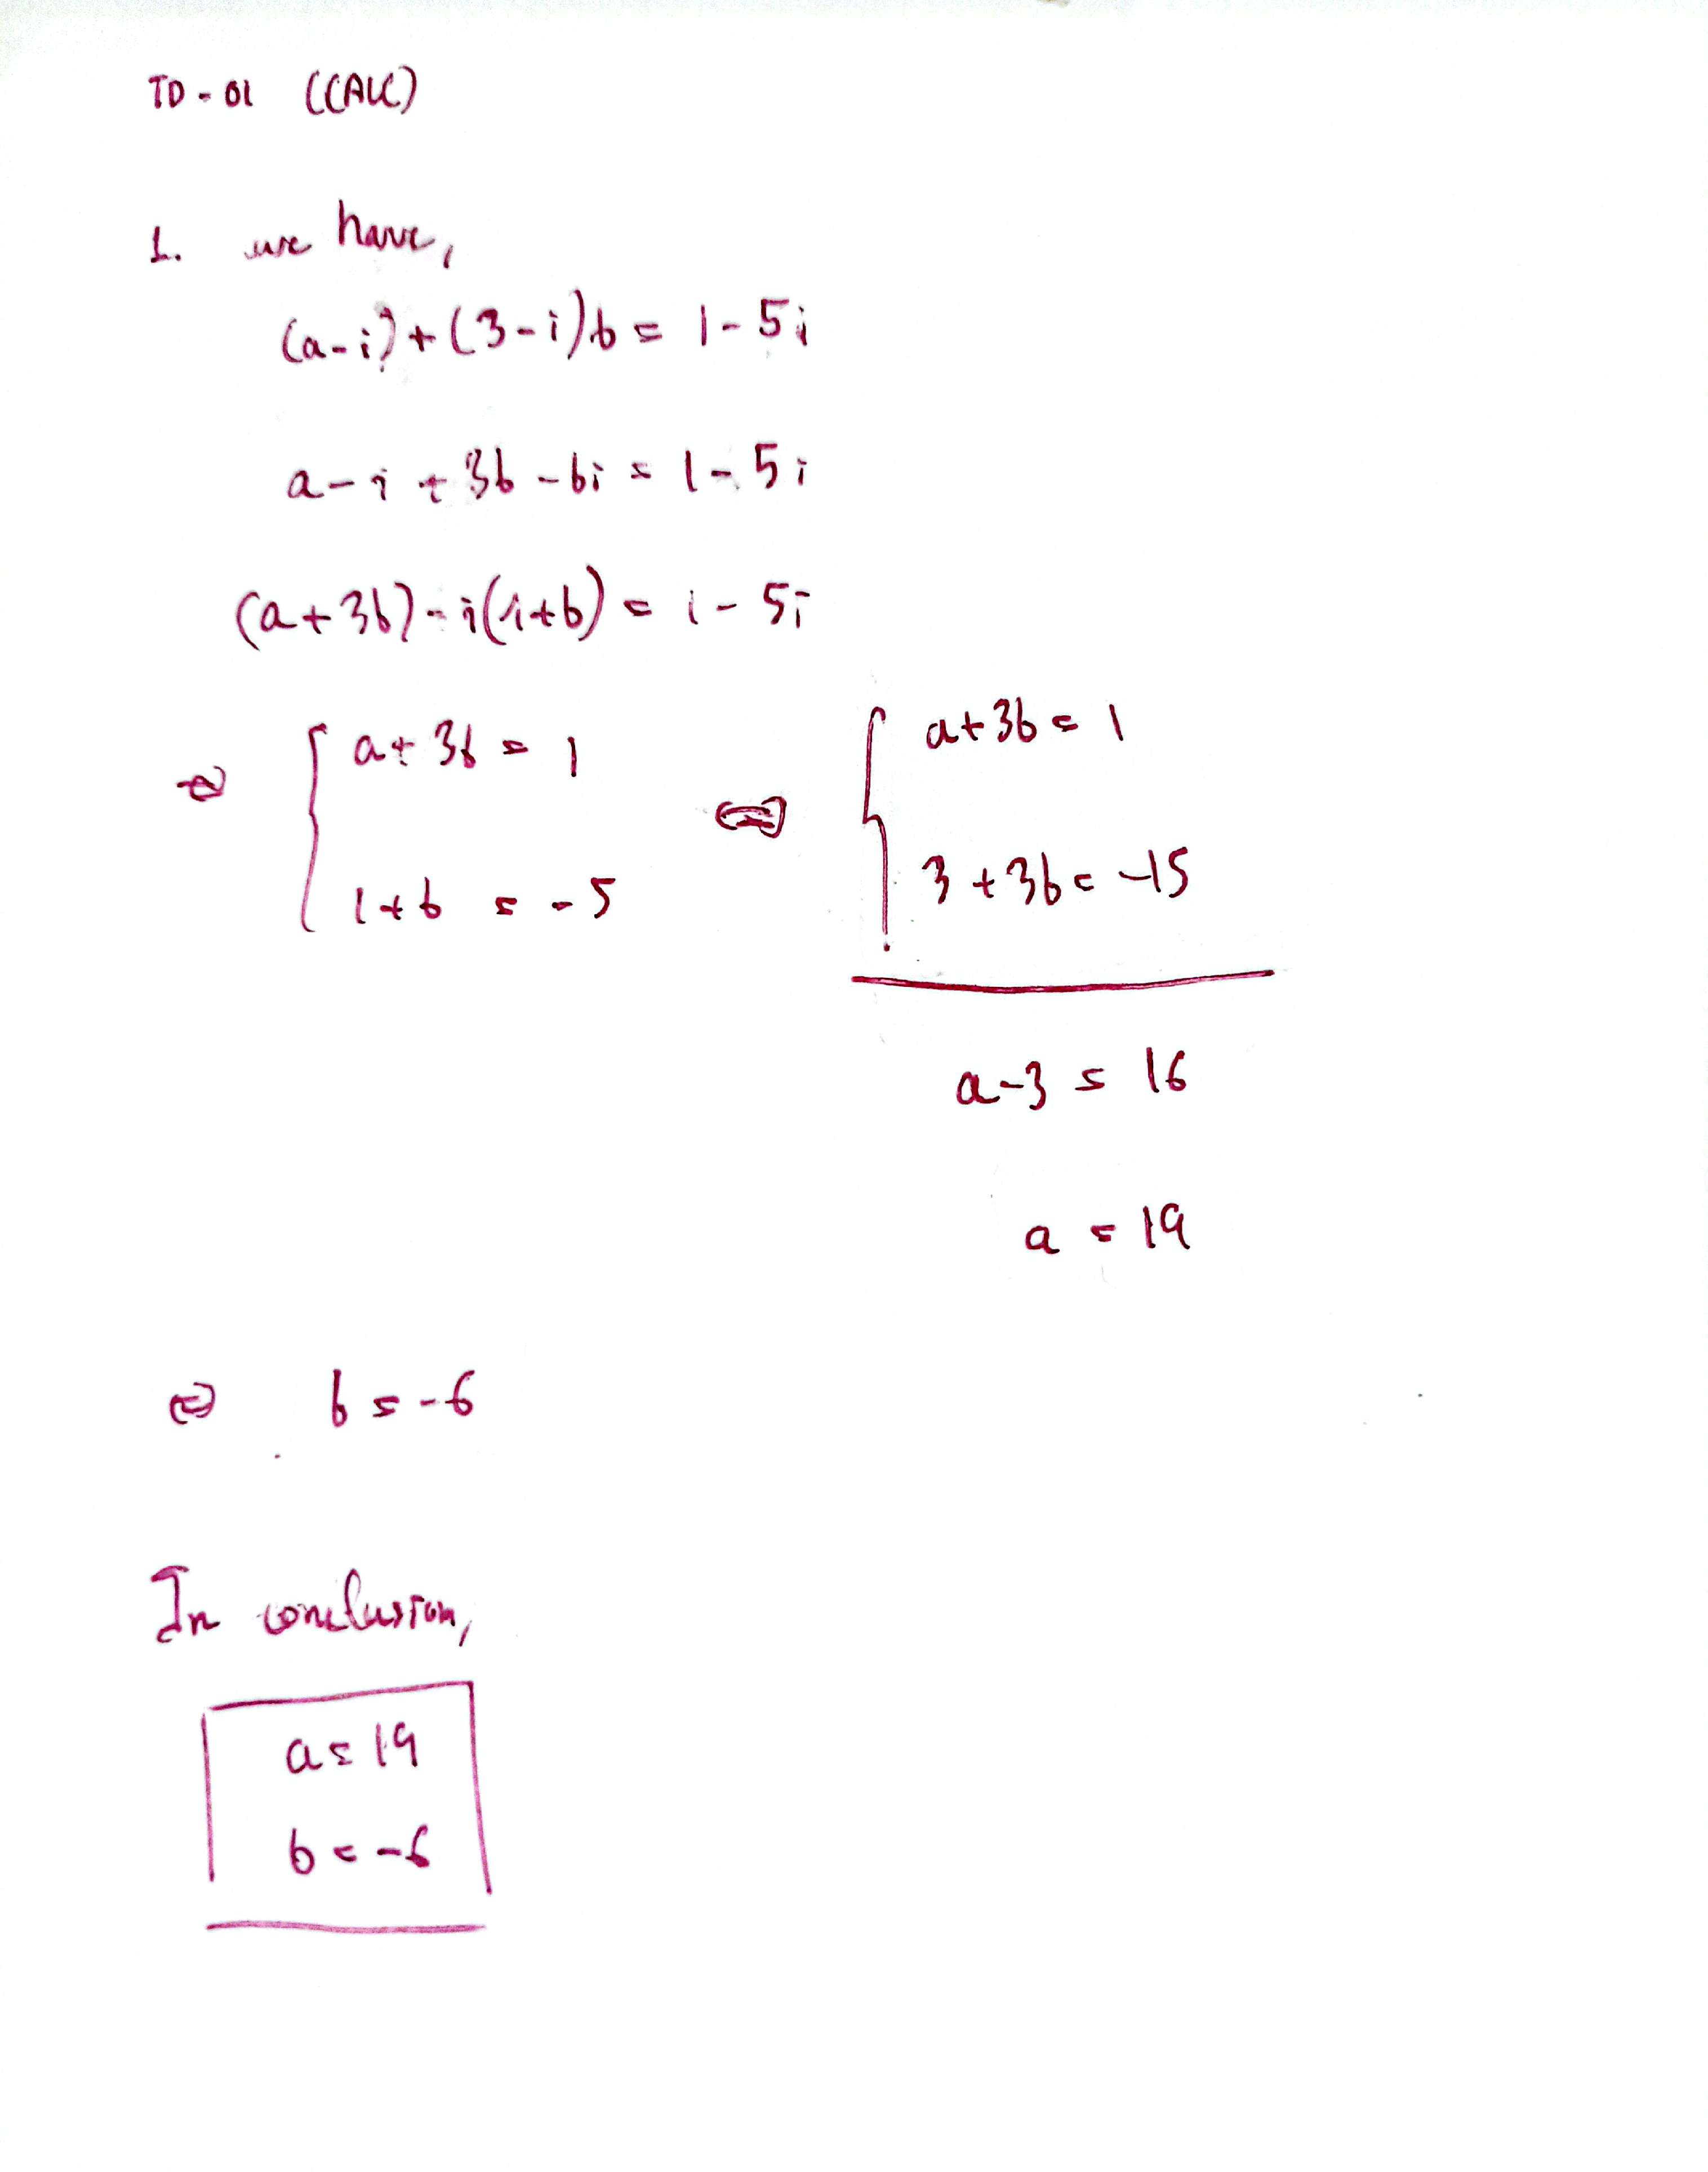 TD-01 (CALC)
1. we have,
(a-i)+(3-i)b = 1-5i
a-i+3b-bi = 1-5i
(a+3b)-i(1+b) = 1-5i
⇔ { a+3b = 1
1+b = -5
⇔ { a+3b = 1
3+3b = -15
a-3 = 16
a = 19
⇔ b = -6
In conclusion,
a = 19
b = -6